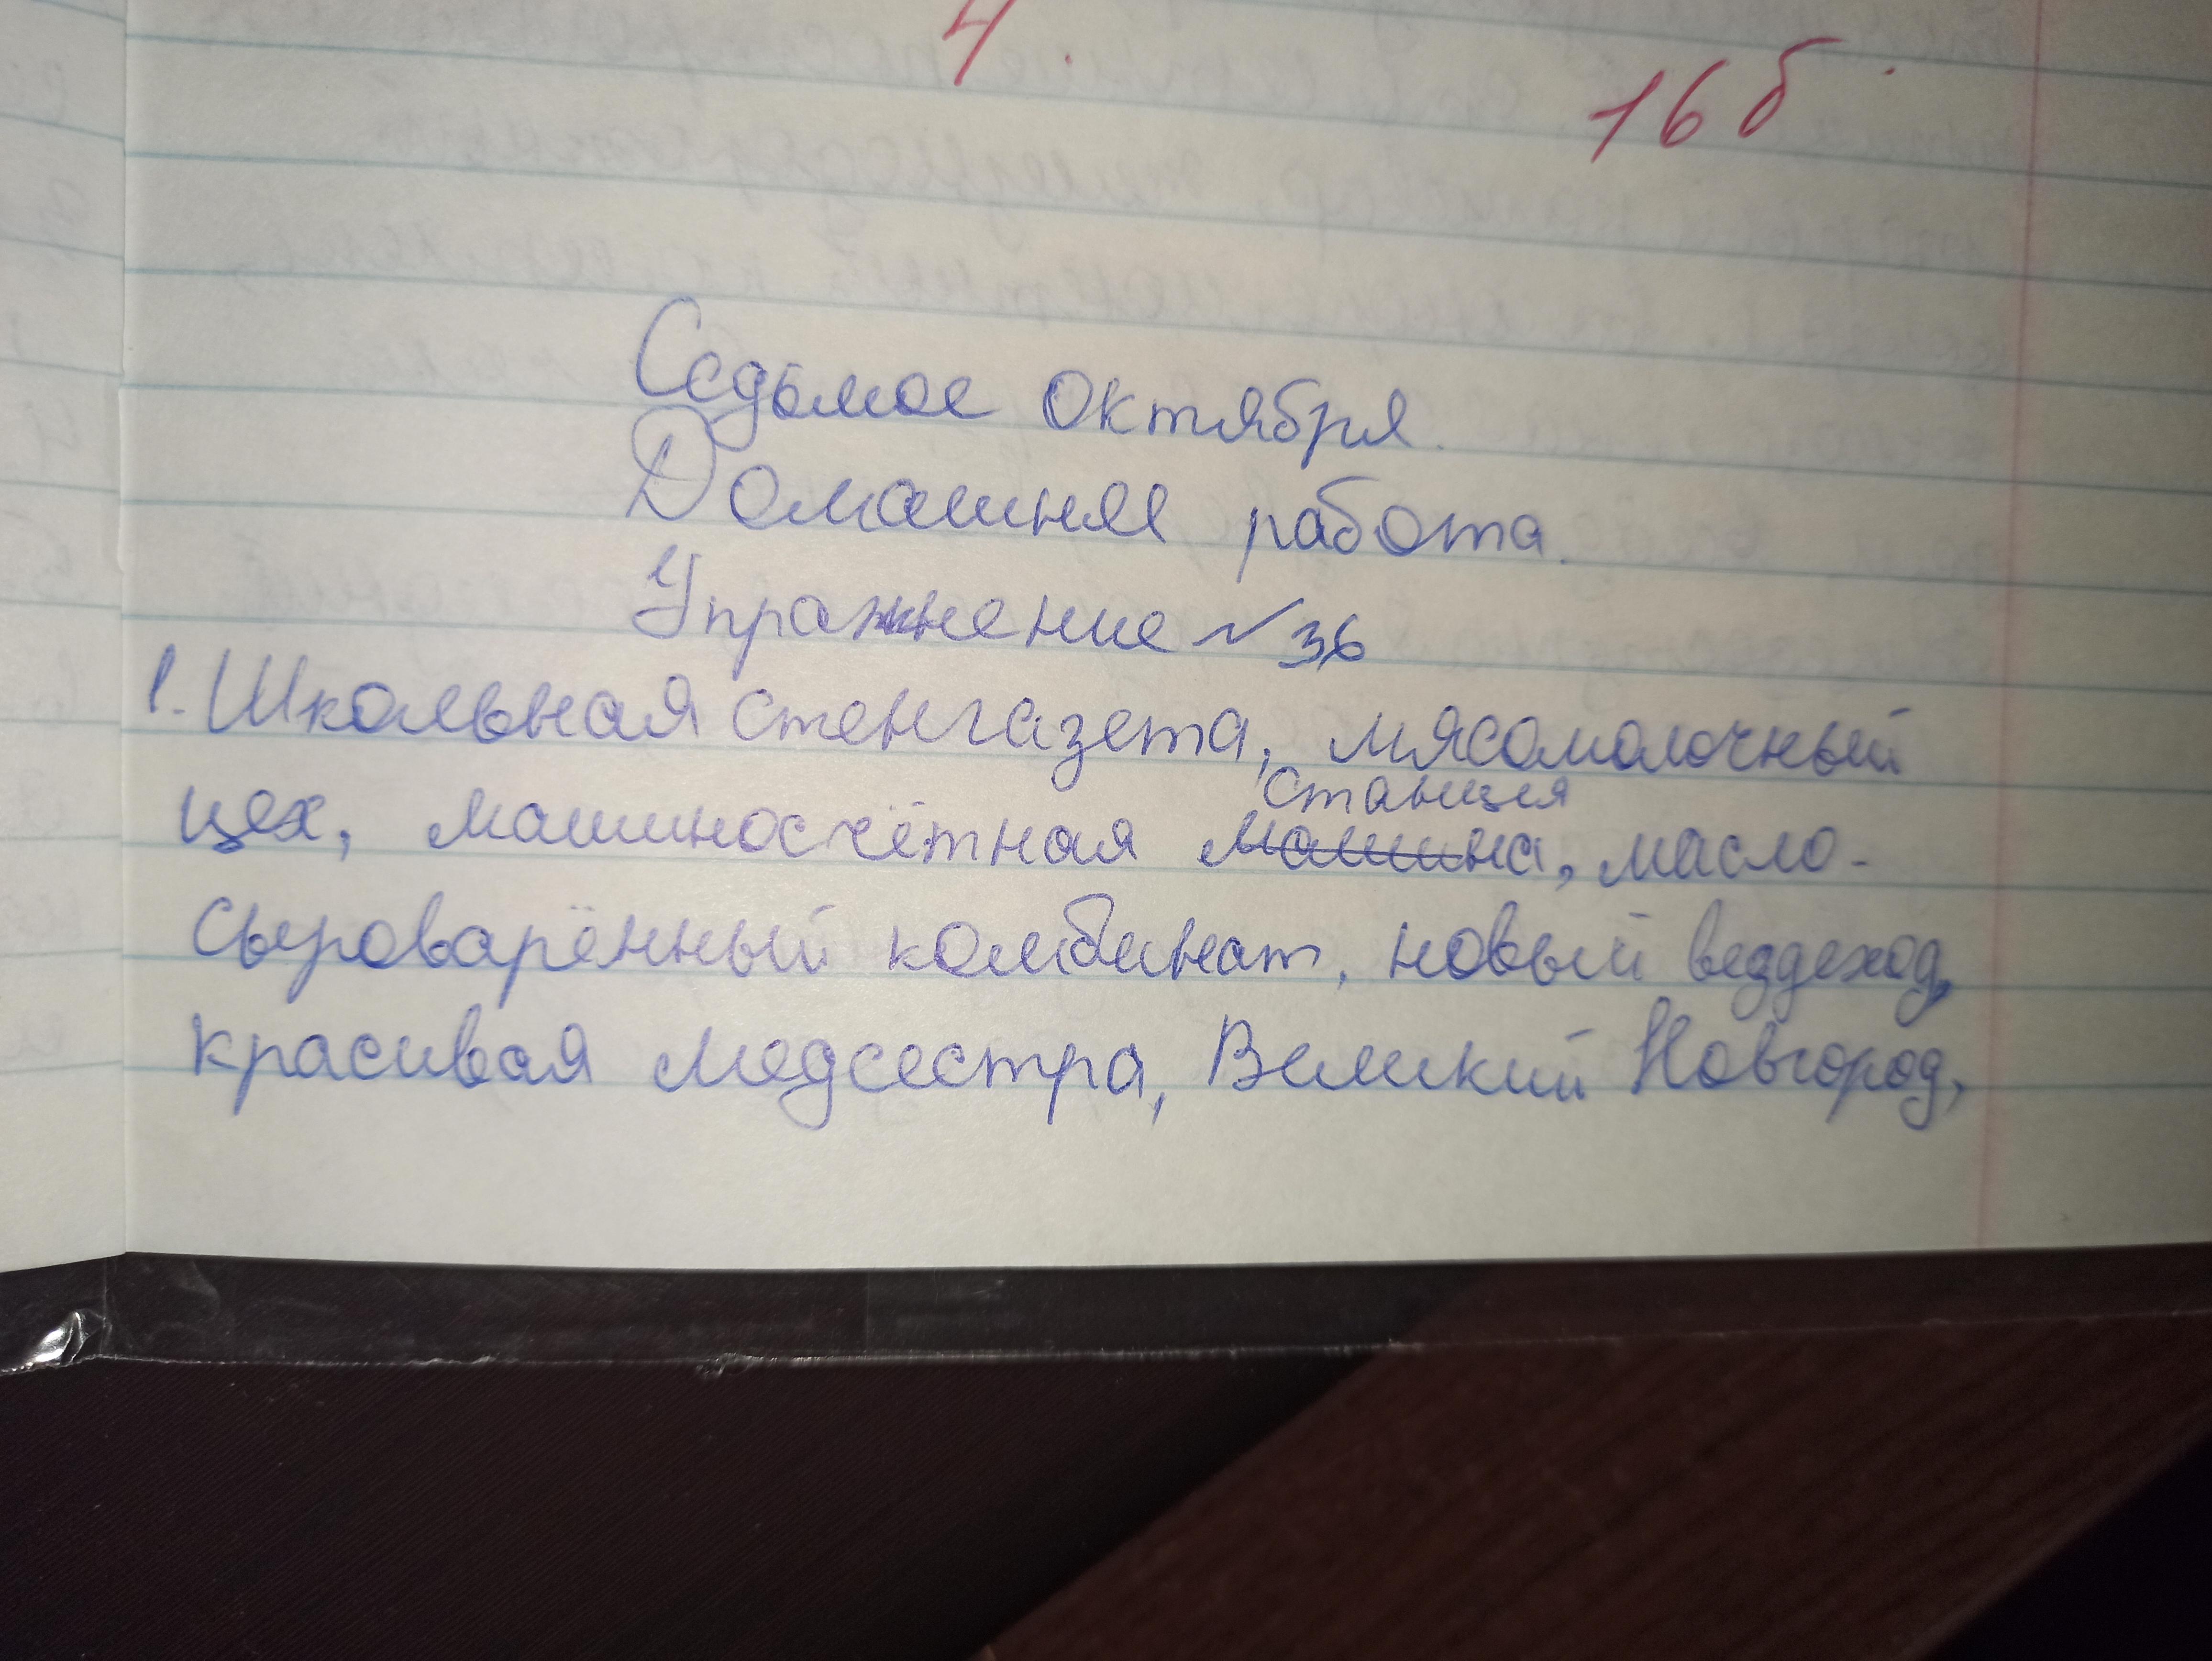 4.
16 б.
Седьмое октября.
Домашняя работа.
Упражнение №36
1. Школьная стенгазета, мясомолочный
станция
цех, машиносчётная машина, масло-
сыроварённый комбинат, новый вездеход,
красивая медсестра, Великий Новгород,